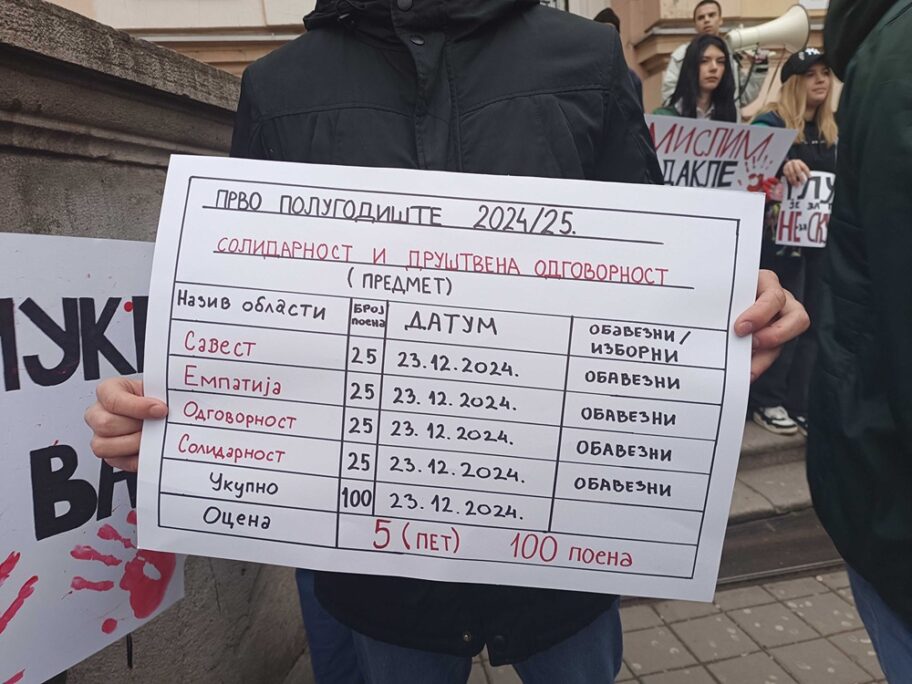 ПРВО ПОЛУГОДИШТЕ 2024/25.
СОЛИДАРНОСТ И ДРУШТВЕНА ОДГОВОРНОСТ
(ПРЕДМЕТ)
Назив области БРОЈ поена ДАТУМ ОБАВЕЗНИ/ИЗБОРНИ
Савест 25 23.12.2024. ОБАВЕЗНИ
Емпатија 25 23.12.2024. ОБАВЕЗНИ
Одговорност 25 23.12.2024. ОБАВЕЗНИ
Солидарност 25 23.12.2024. ОБАВЕЗНИ
Укупно 100 23.12.2024.
Оцена 5 (ПЕТ) 100 поена
МИСЛИМ
ДАКЛЕ
ЈЕ ЗА
НЕ за